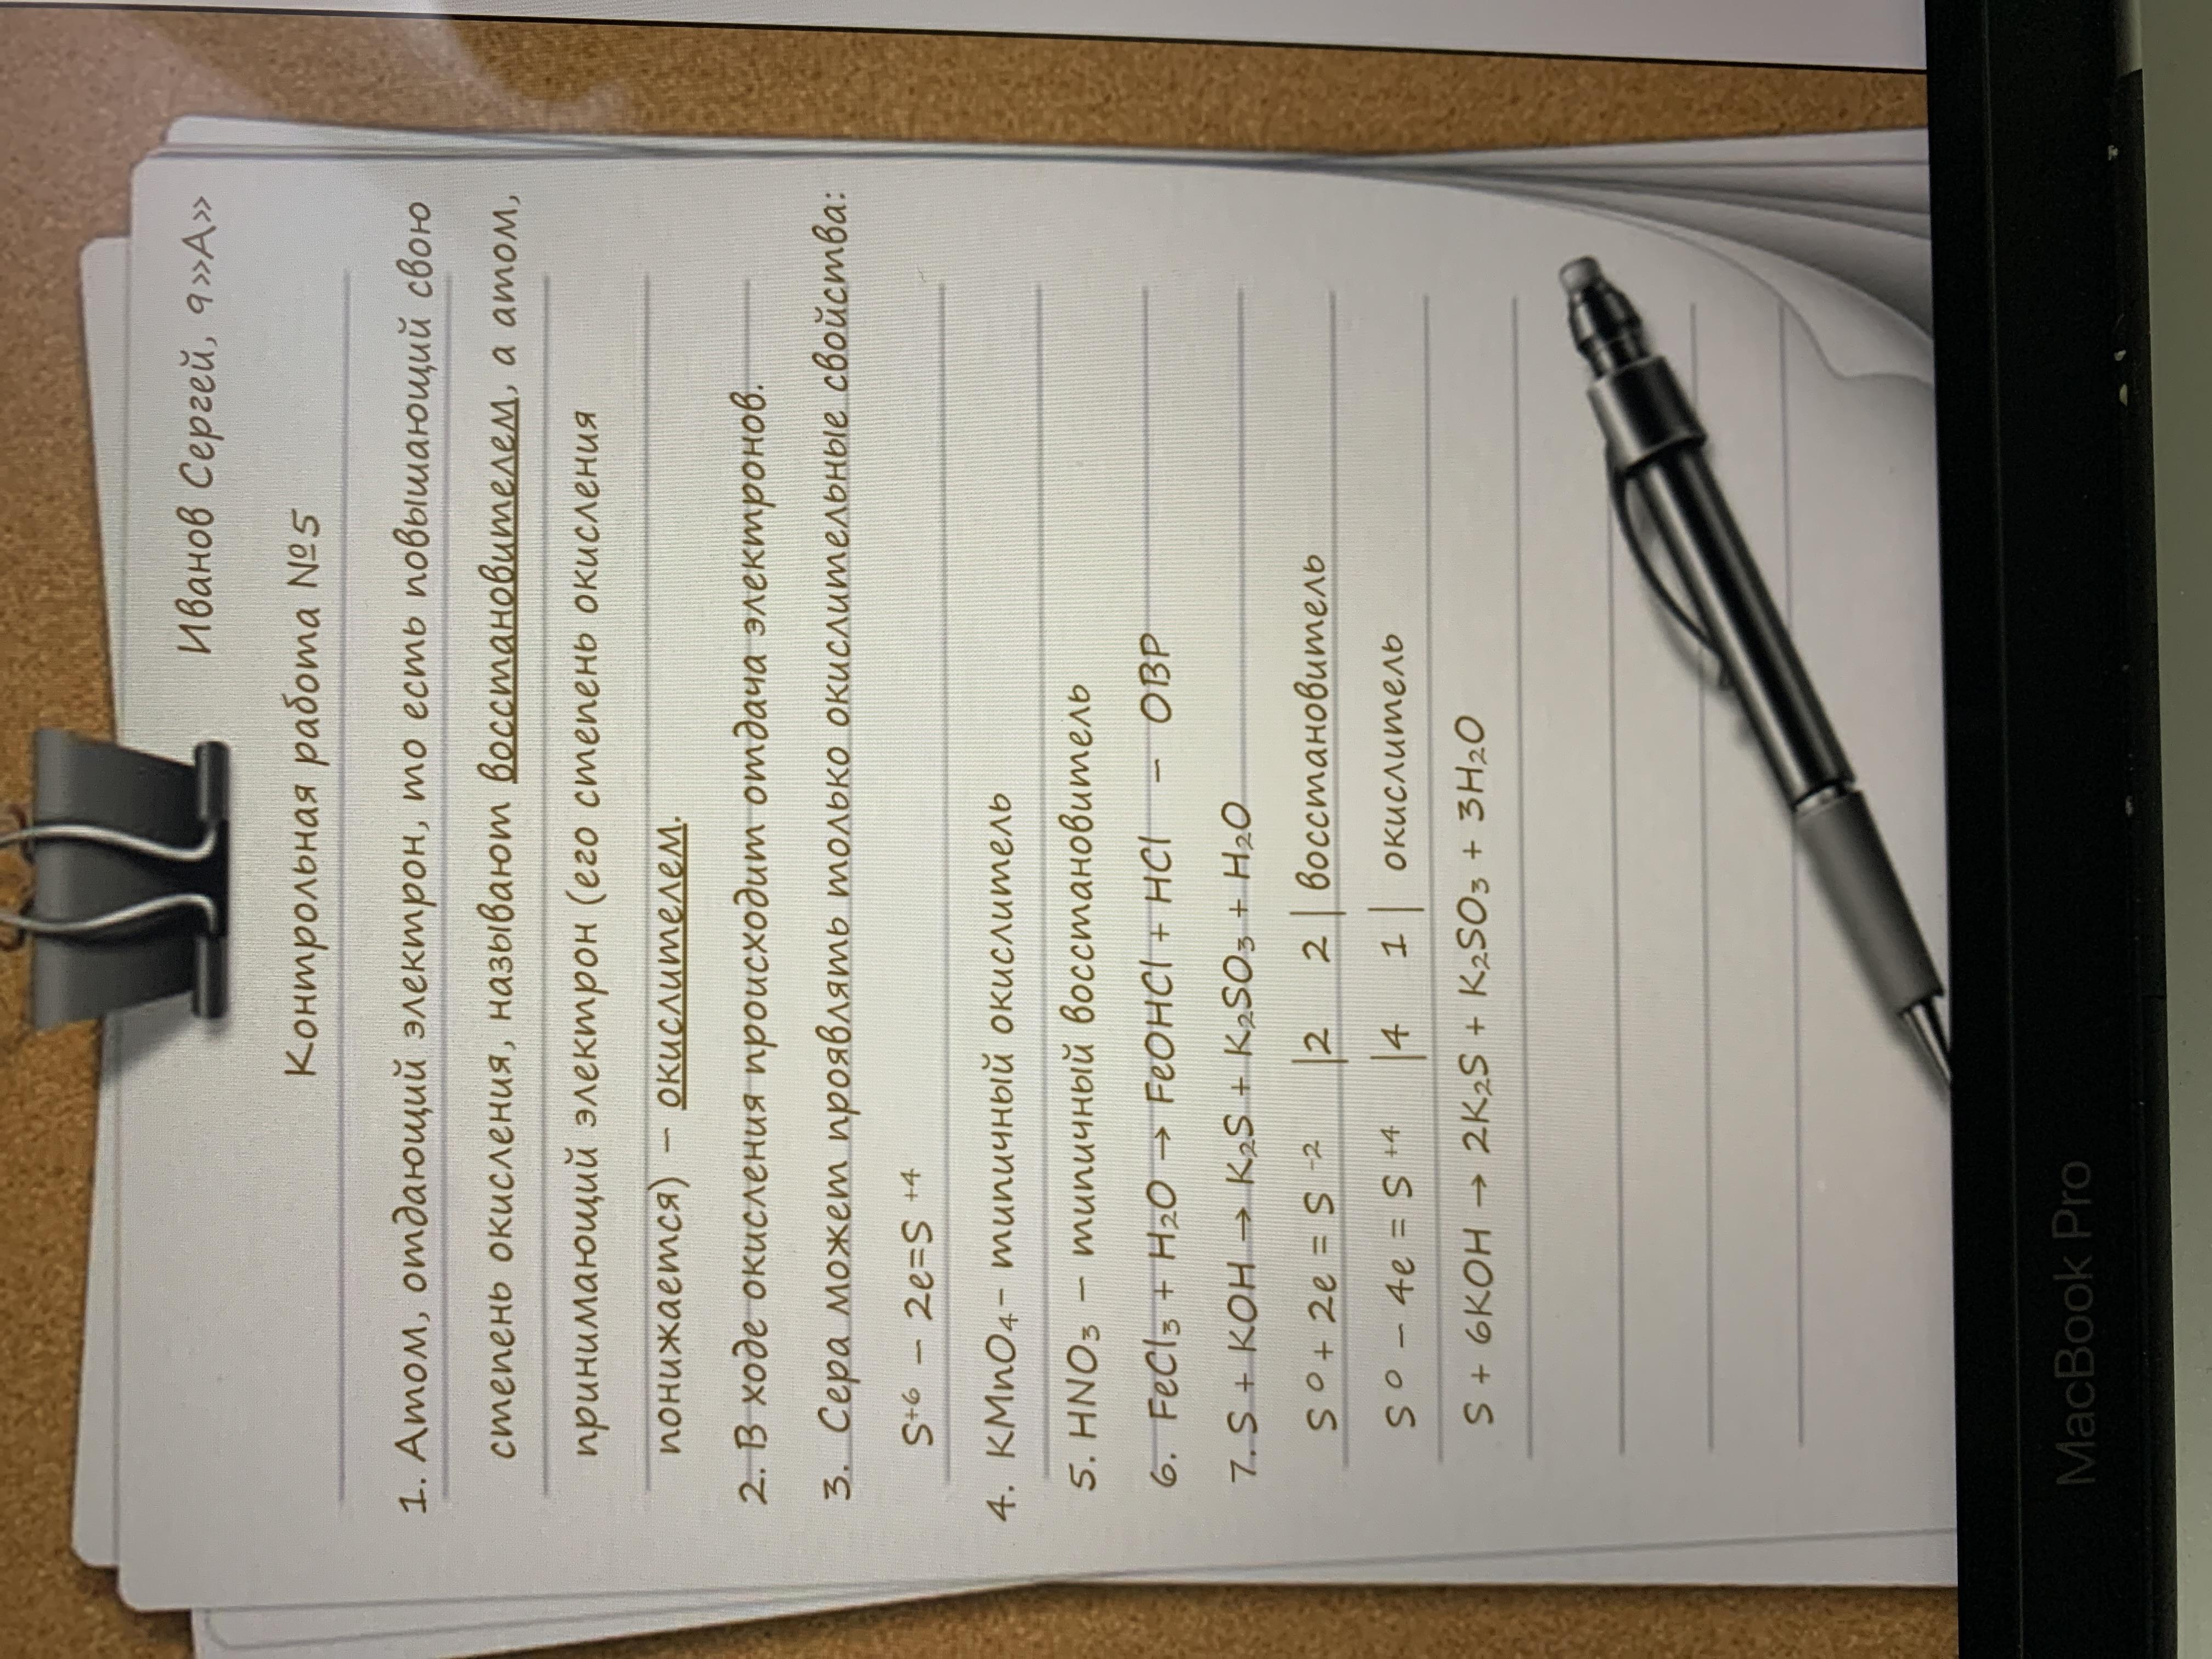 Иванов Сергей, 9»А»
Контрольная работа №5
1. Атом, отдающий электрон, то есть повышающий свою
степень окисления, называют восстановителем, а атом,
принимающий электрон (его степень окисления
понижается) – окислителем.
2. В ходе окисления происходит отдача электронов.
3. Сера может проявлять только окислительные свойства:
S⁺⁶ – 2e=S ⁺⁴
4. KMnO₄ – типичный окислитель
5. HNO₃ – типичный восстановитель
6. FeCl₃ + H₂O → FeOHCl + HCl – ОВР
7. S + KOH → K₂S + K₂SO₃ + H₂O
S ⁰ + 2e = S ⁻² |2 2| восстановитель
S ⁰ – 4e = S ⁺⁴ |4 1| окислитель
S + 6KOH → 2K₂S + K₂SO₃ + 3H₂O
MacBook Pro